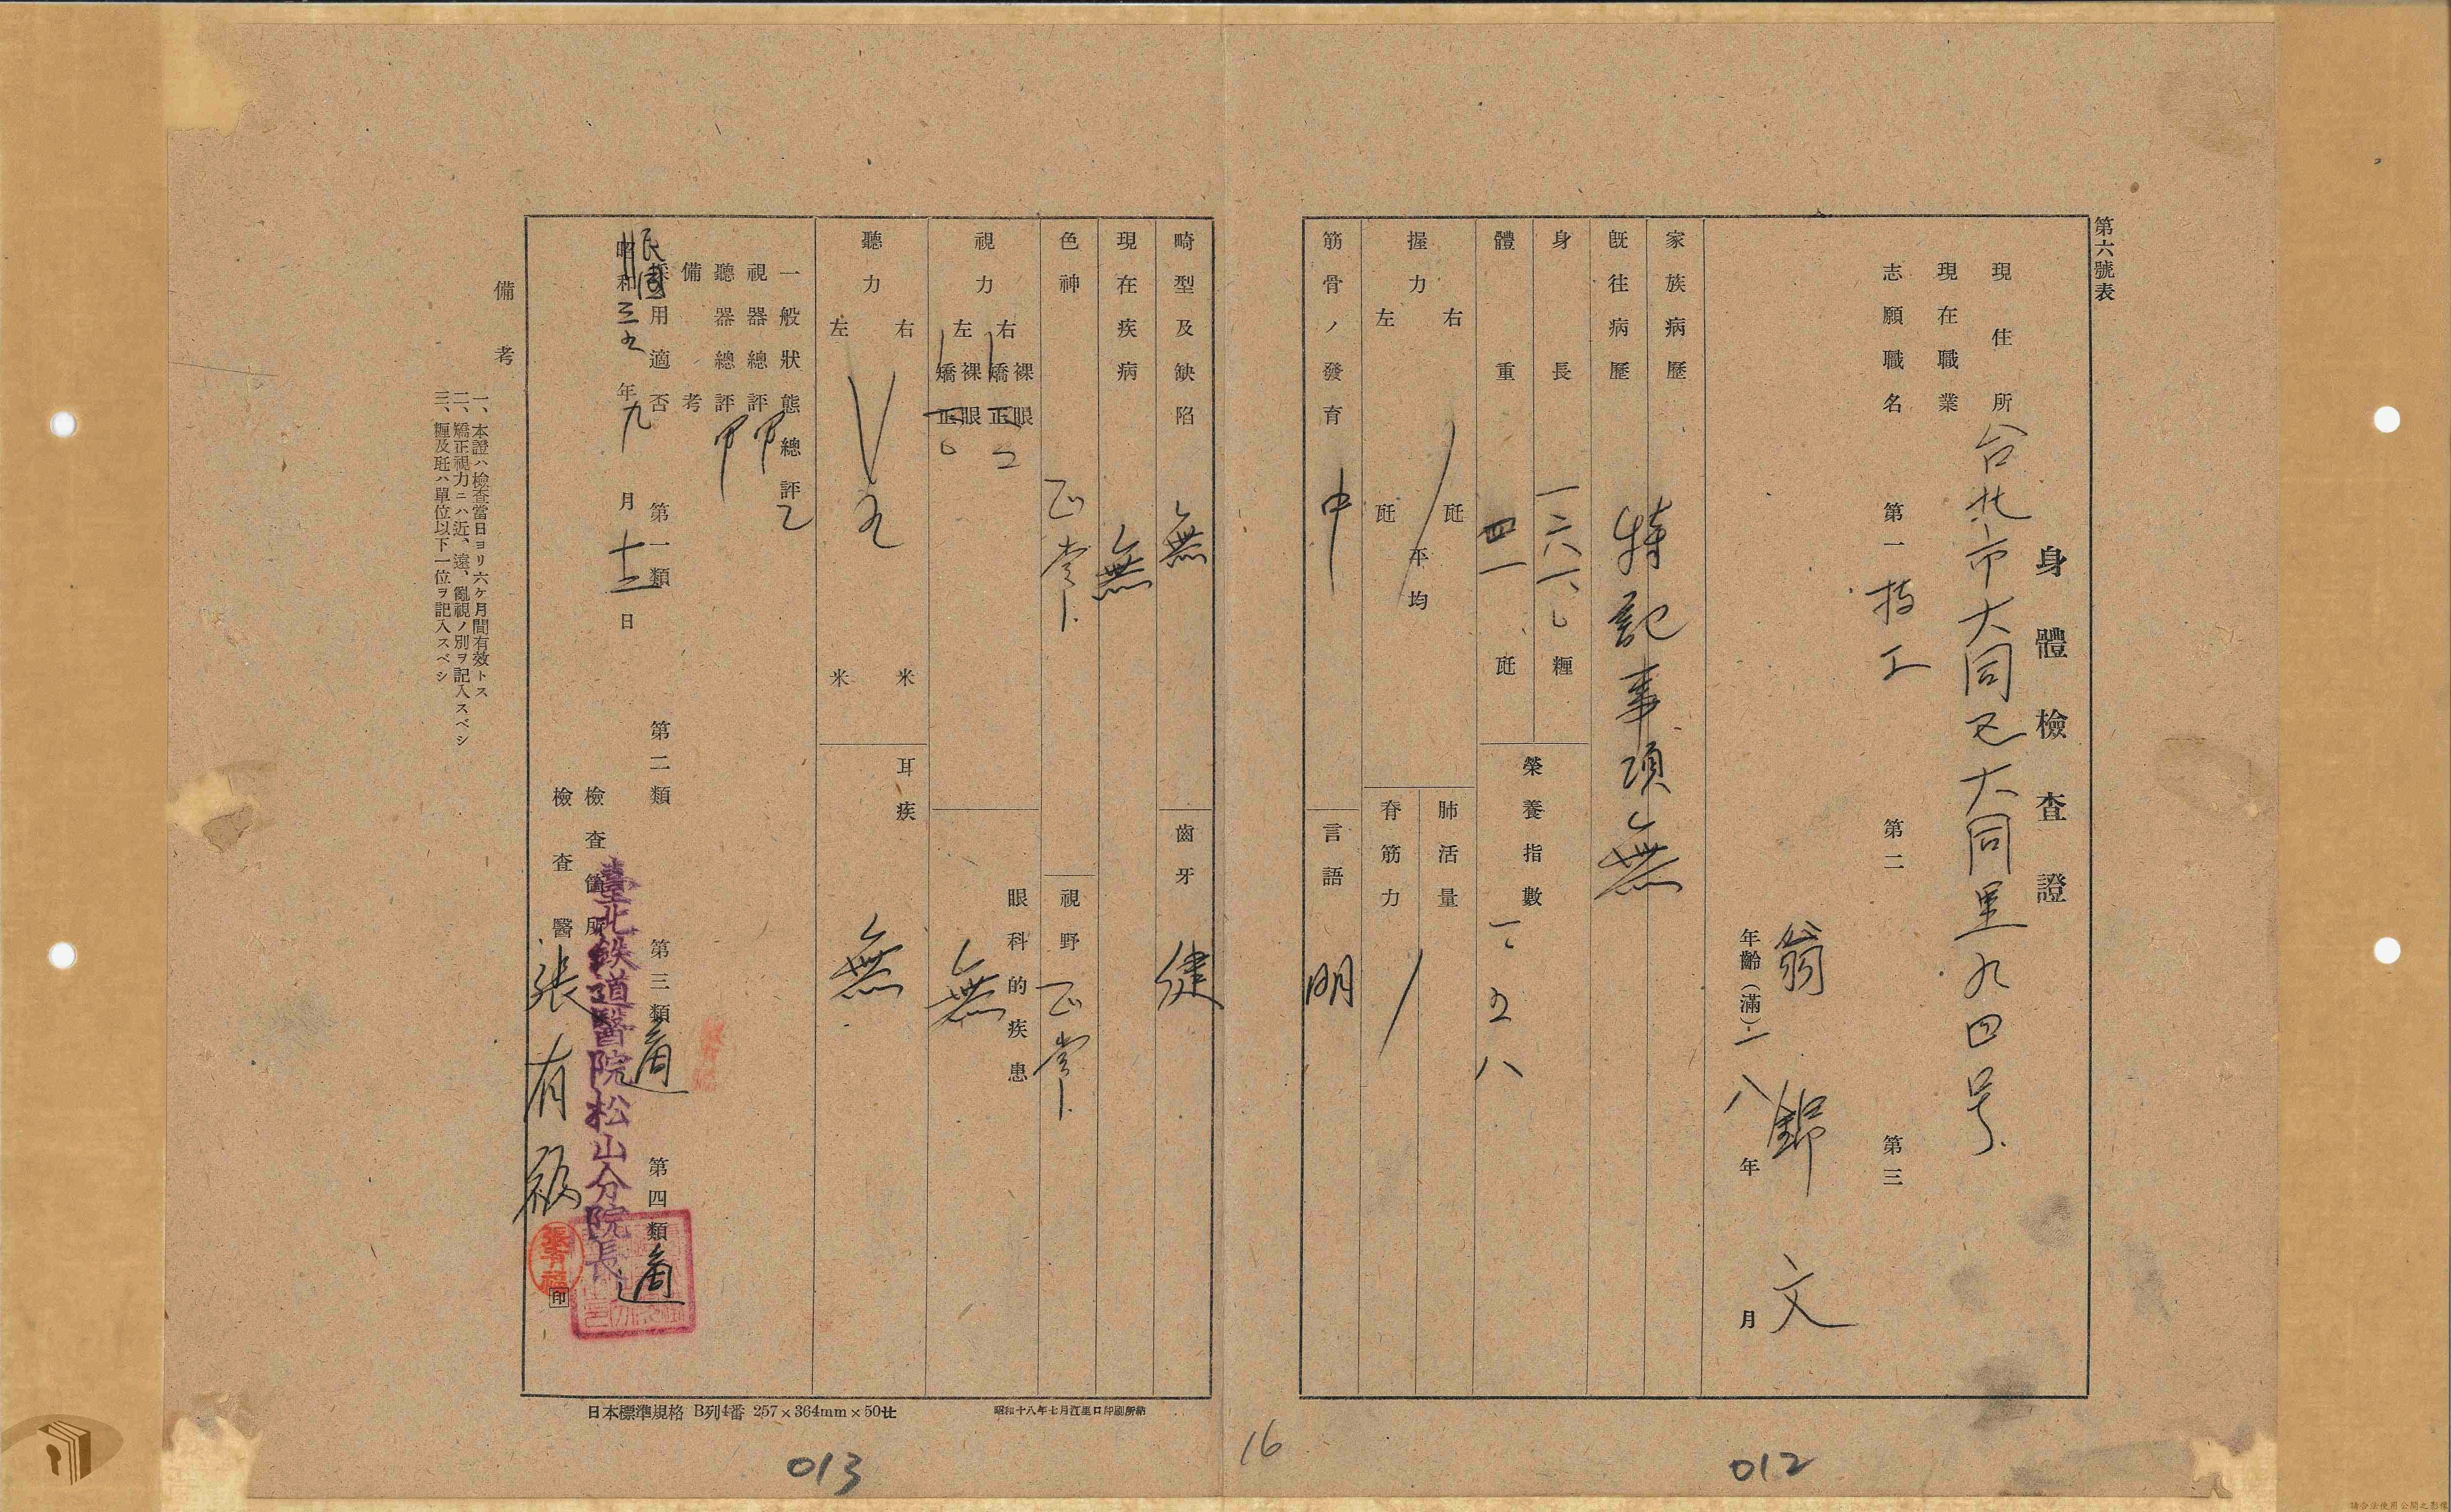 第六號表
身體檢查證
現住所 台北市大同区大同里九四号
現在職業
志願職名 第一 技工 第二 第三
翁錦文
年齡(滿)二八年 月
家族病歷
既往病歷
特記事項無
身長 一六一、〇糎
體重 四一、瓩
榮養指數 一、五八
握力 右 瓩 左 瓩 平均
肺活量
脊筋力
筋骨ノ發育 中
言語 明
畸型及缺陷 無
齒牙 健
現在疾病 無
色神 正常
視野 正常
視力 右 裸眼 矯正 左 裸眼 矯正
眼科的疾患 無
聽力 右 米 左 米 五
耳疾 無
一般狀態總評 乙
視器總評 甲
聽器總評 甲
備考
採用適否 第一類 第二類 第三類 適 第四類 適
昭和 民國 三九年九月十二日
檢查箇所 臺北鉄道醫院松山分院長
檢查醫 張有福 印
張有福
備考
一、本證ハ檢查當日ヨリ六ケ月間有效トス
二、矯正視力ニハ近、遠、亂視ノ別ヲ記入スベシ
三、糎及瓩ハ單位以下一位ヲ記入スベシ
昭和十八年七月江里口印刷所納
日本標準規格 B列4番 257×364mm×50
16
012
013